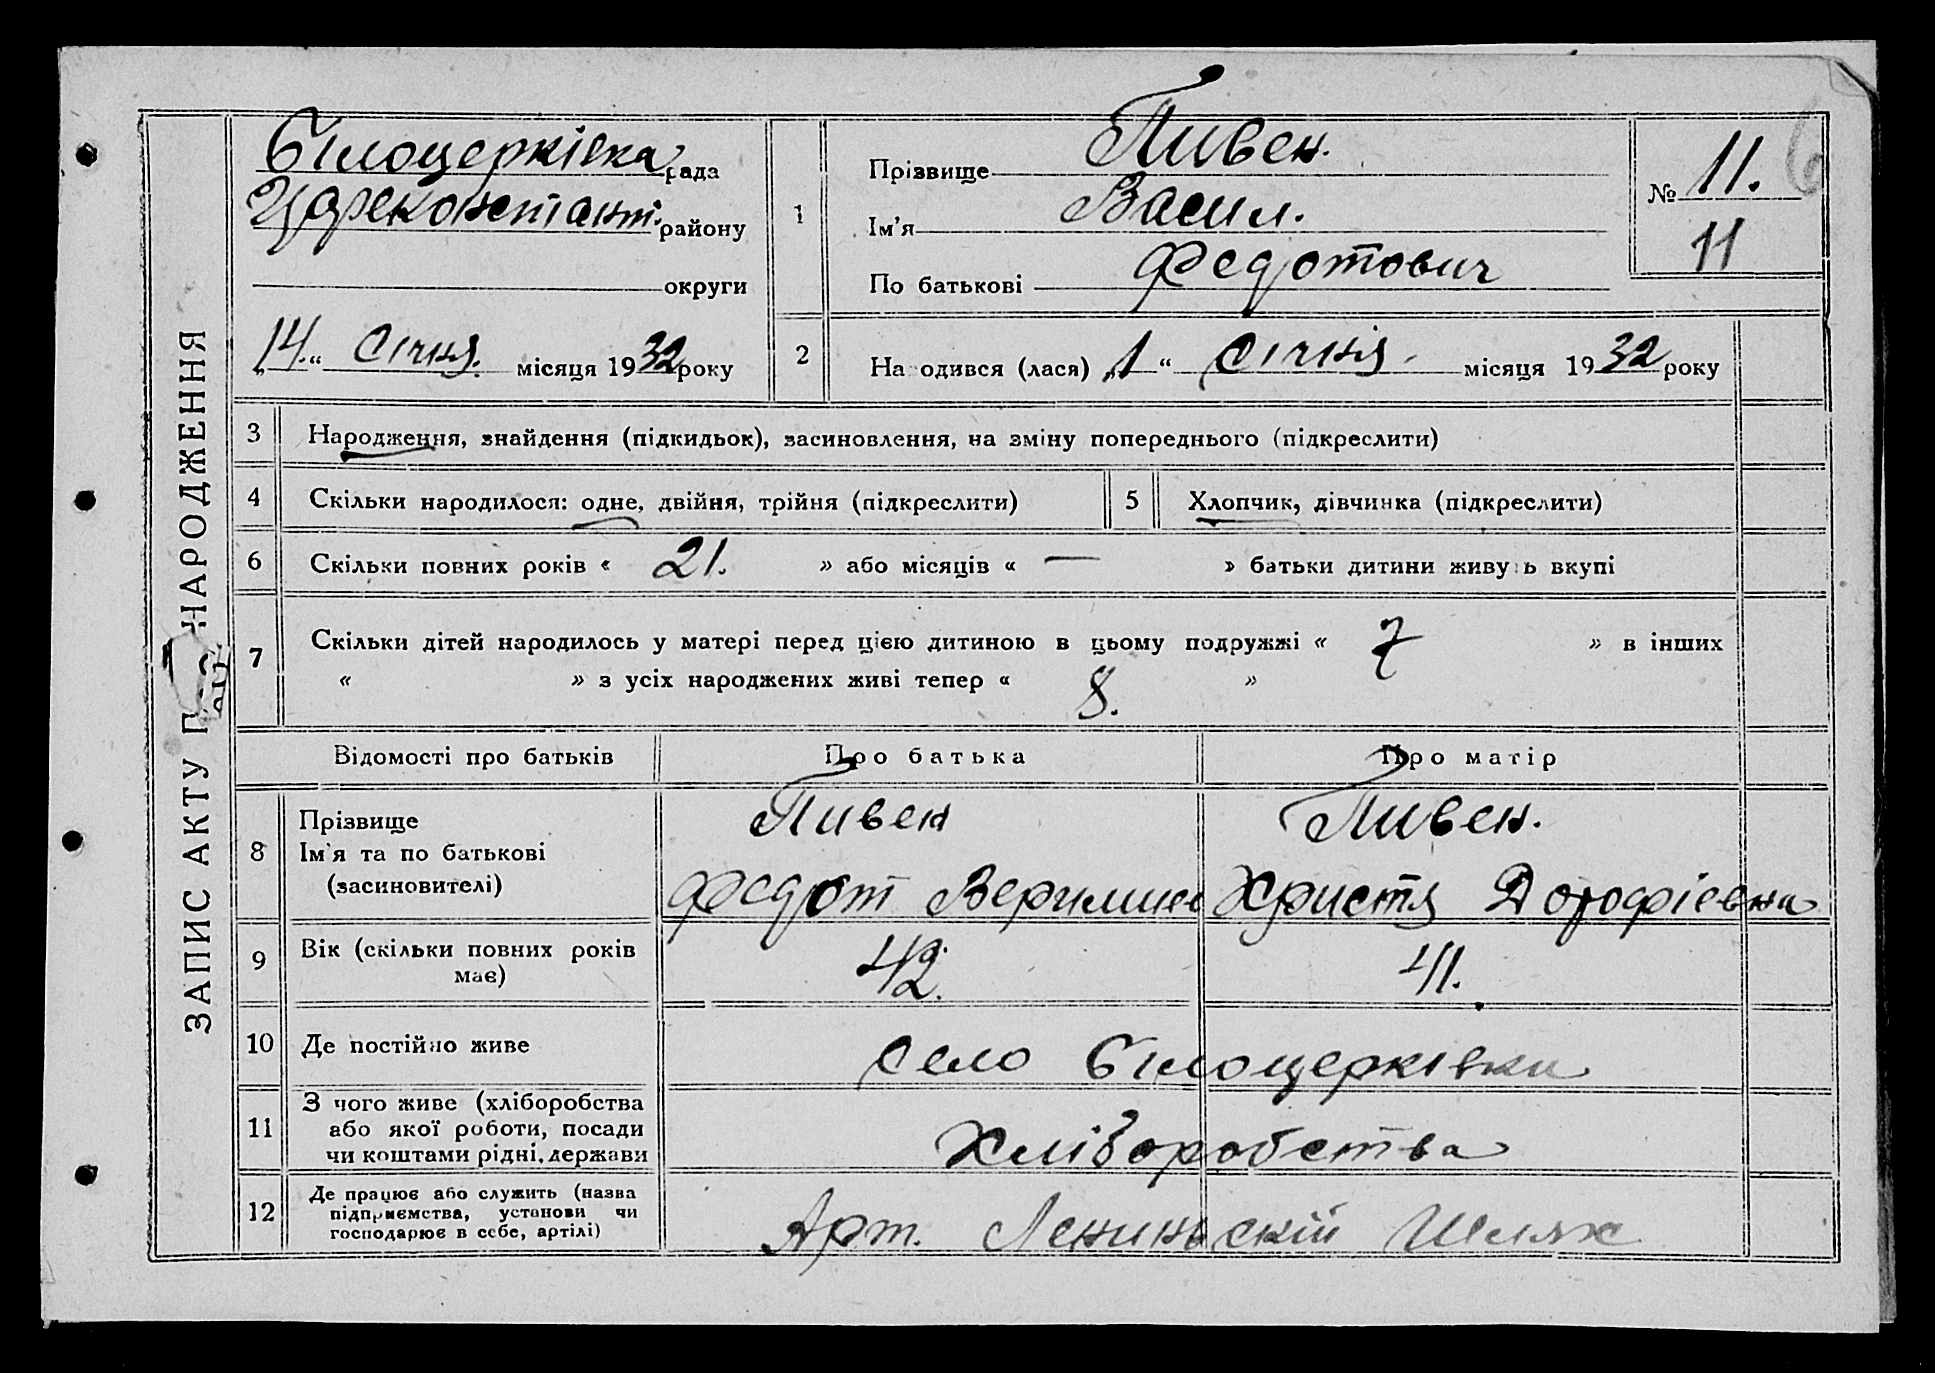 ЗАПИС АКТУ П НАРОДЖЕННЯ
Білоцерківка рада
Цареконстант. району
округи
„14.“ Січня. місяця 1932 року
1
Прізвище Пивен.
Ім'я Васил.
По батькові Федотович
№ 11.
11
6
2
На одився (лася) „1“ Січня. місяця 1932 року
3 Народження, знайдення (підкидьок), засиновлення, на зміну попереднього (підкреслити)
4 Скільки народилося: одне, двійня, трійня (підкреслити) 5 Хлопчик, дівчинка (підкреслити)
6 Скільки повних років « 21. » або місяців « — » батьки дитини живуть вкупі
7 Скільки дітей народилось у матері перед цією дитиною в цьому подружжі « 7 » в інших
« » з усіх народжених живі тепер « 8. »
Відомості про батьків Про батька Про матір
8 Прізвище
Ім'я та по батькові
(засиновителі)
Пивен Пивен.
Федот Христя Дорофіевна
9 Вік (скільки повних років
має)
42. 41.
10 Де постійно живе Село Білоцерківки
11 З чого живе (хліборобства
або якої роботи, посади
чи коштами рідні, держави
Хліборобства
12 Де працює або служить (назва
підприємства, установи чи
господарює в себе, артілі)
Арт. Лениньскій Шлях